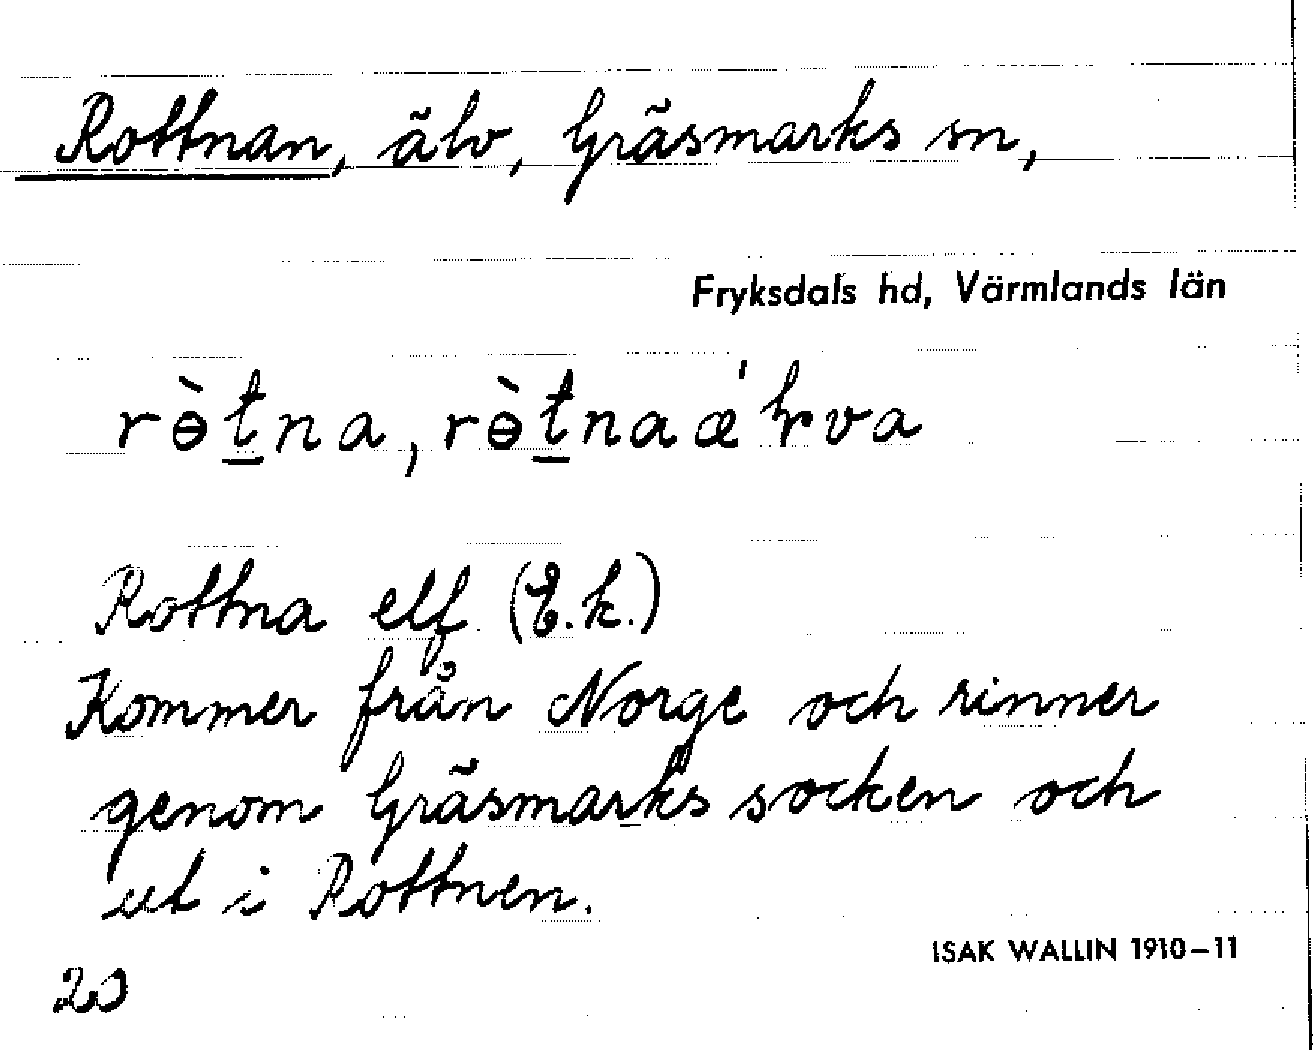 Rottnan, älv, Gräsmarks sn,
Fryksdals hd, Värmlands län
rɵ̀t̲na, rɵ̀t̲naǽɽva
Rottna elf (E.k.)
Kommer från Norge och rinner
genom Gräsmarks socken och
ut i Rottnen.
ISAK WALLIN 1910–11
20